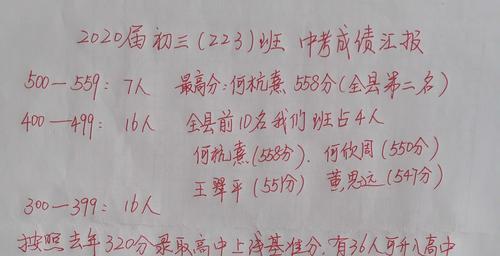 2020届初三(223)班 中考成绩汇报
500—559: 7人 最高分:何杭熹 558分(全县第二名)
400—499: 16人 全县前10名我们班占4人
何杭熹(558分). 何欣周(550分)
王翠平(551分) 黄思远(547分)
300—399: 16人
按照去年320分录取高中上线基准分,有36人可升入高中